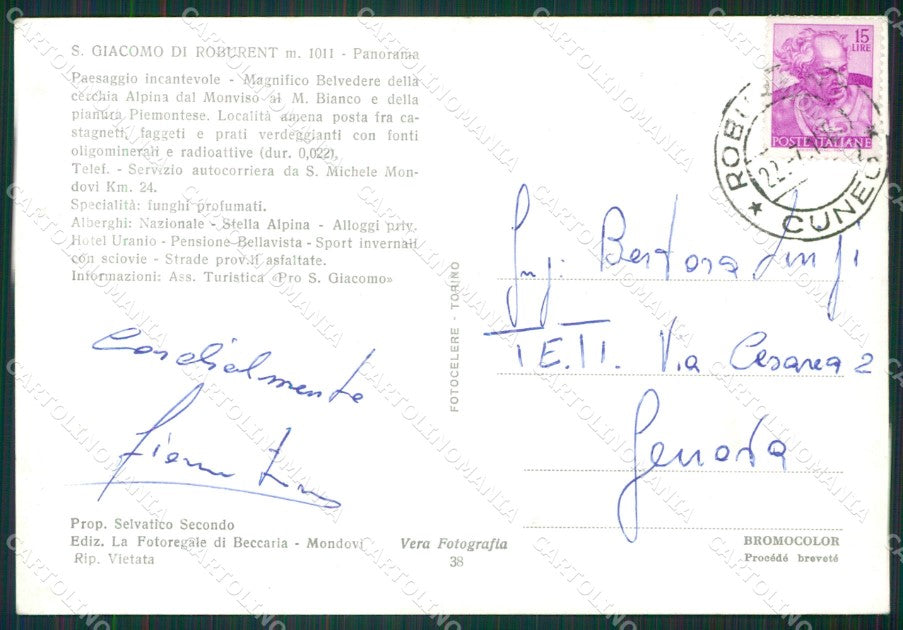 S. GIACOMO DI ROBURENT m. 1011 - Panorama
Paesaggio incantevole - Magnifico Belvedere della
cerchia Alpina dal Monviso al M. Bianco e della
pianura Piemontese. Località amena posta fra ca-
stagneti, faggeti e prati verdeggianti con fonti
oligominerali e radioattive (dur. 0,022).
Telef. - Servizio autocorriera da S. Michele Mon-
dovi Km. 24.
Specialità: funghi profumati.
Alberghi: Nazionale - Stella Alpina - Alloggi priv.
Hotel Uranio - Pensione Bellavista - Sport invernali
con sciovie - Strade prov.li asfaltate.
Informazioni: Ass. Turistica «Pro S. Giacomo»
Cordialmente
Prop. Selvatico Secondo
Ediz. La Fotoregale di Beccaria - Mondovì
Rip. Vietata
Vera Fotografia
38
FOTOCELERE - TORINO
15
LIRE
POSTE ITALIANE
CUNEO
Ing: Bertora Luigi
TE.TI. Via Cesarea 2
Genova
BROMOCOLOR
Procédé breveté
CARTOLINOMANIA